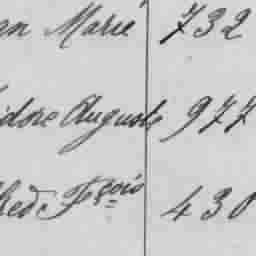 an Marie 732
idore Auguste 977
fred Fçois 430